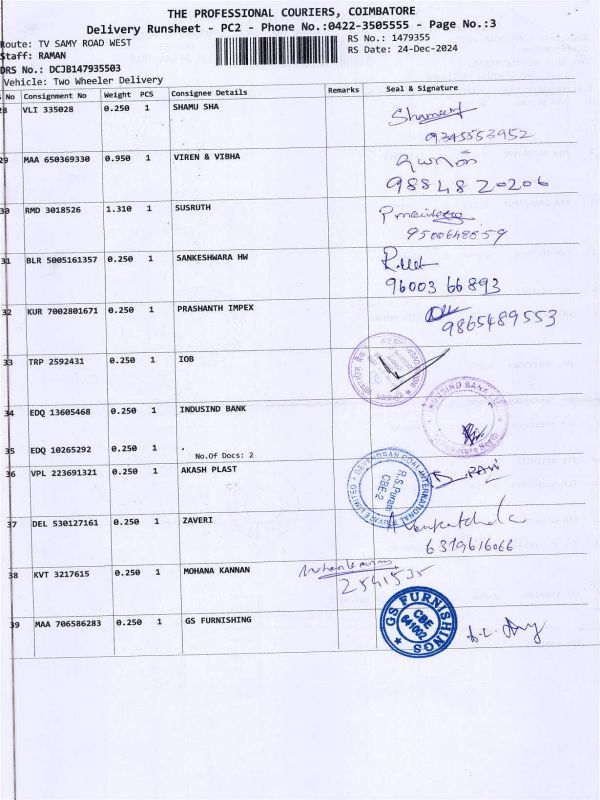 THE PROFESSIONAL COURIERS, COIMBATORE
Delivery Runsheet - PC2 - Phone No.:0422-3505555 - Page No.:3
Route: TV SAMY ROAD WEST RS No.: 1479355
Staff: RAMAN RS Date: 24-Dec-2024
DRS No.: DCJB147935503
Vehicle: Two Wheeler Delivery
No Consignment No Weight PCS Consignee Details Remarks Seal & Signature
VLI 335028 0.250 1 SHAMU SHA
9345553952
29 MAA 650369330 0.950 1 VIREN & VIBHA
98848 20206
30 RMD 3018526 1.310 1 SUSRUTH
9500648559
31 BLR 5005161357 0.250 1 SANKESHWARA HW
96003 66893
32 KUR 7002801671 0.250 1 PRASHANTH IMPEX
9865489553
33 TRP 2592431 0.250 1 IOB
34 EDQ 13605468 0.250 1 INDUSIND BANK
INDUSIND BANK
35 EDQ 10265292 0.250 1 .
No.Of Docs: 2
36 VPL 223691321 0.250 1 AKASH PLAST
R.S.Puram
CBE-2
37 DEL 530127161 0.250 1 ZAVERI
6379616066
38 KVT 3217615 0.250 1 MOHANA KANNAN
2541535
39 MAA 706586283 0.250 1 GS FURNISHING
GS FURNISHINGS
CBE
641002